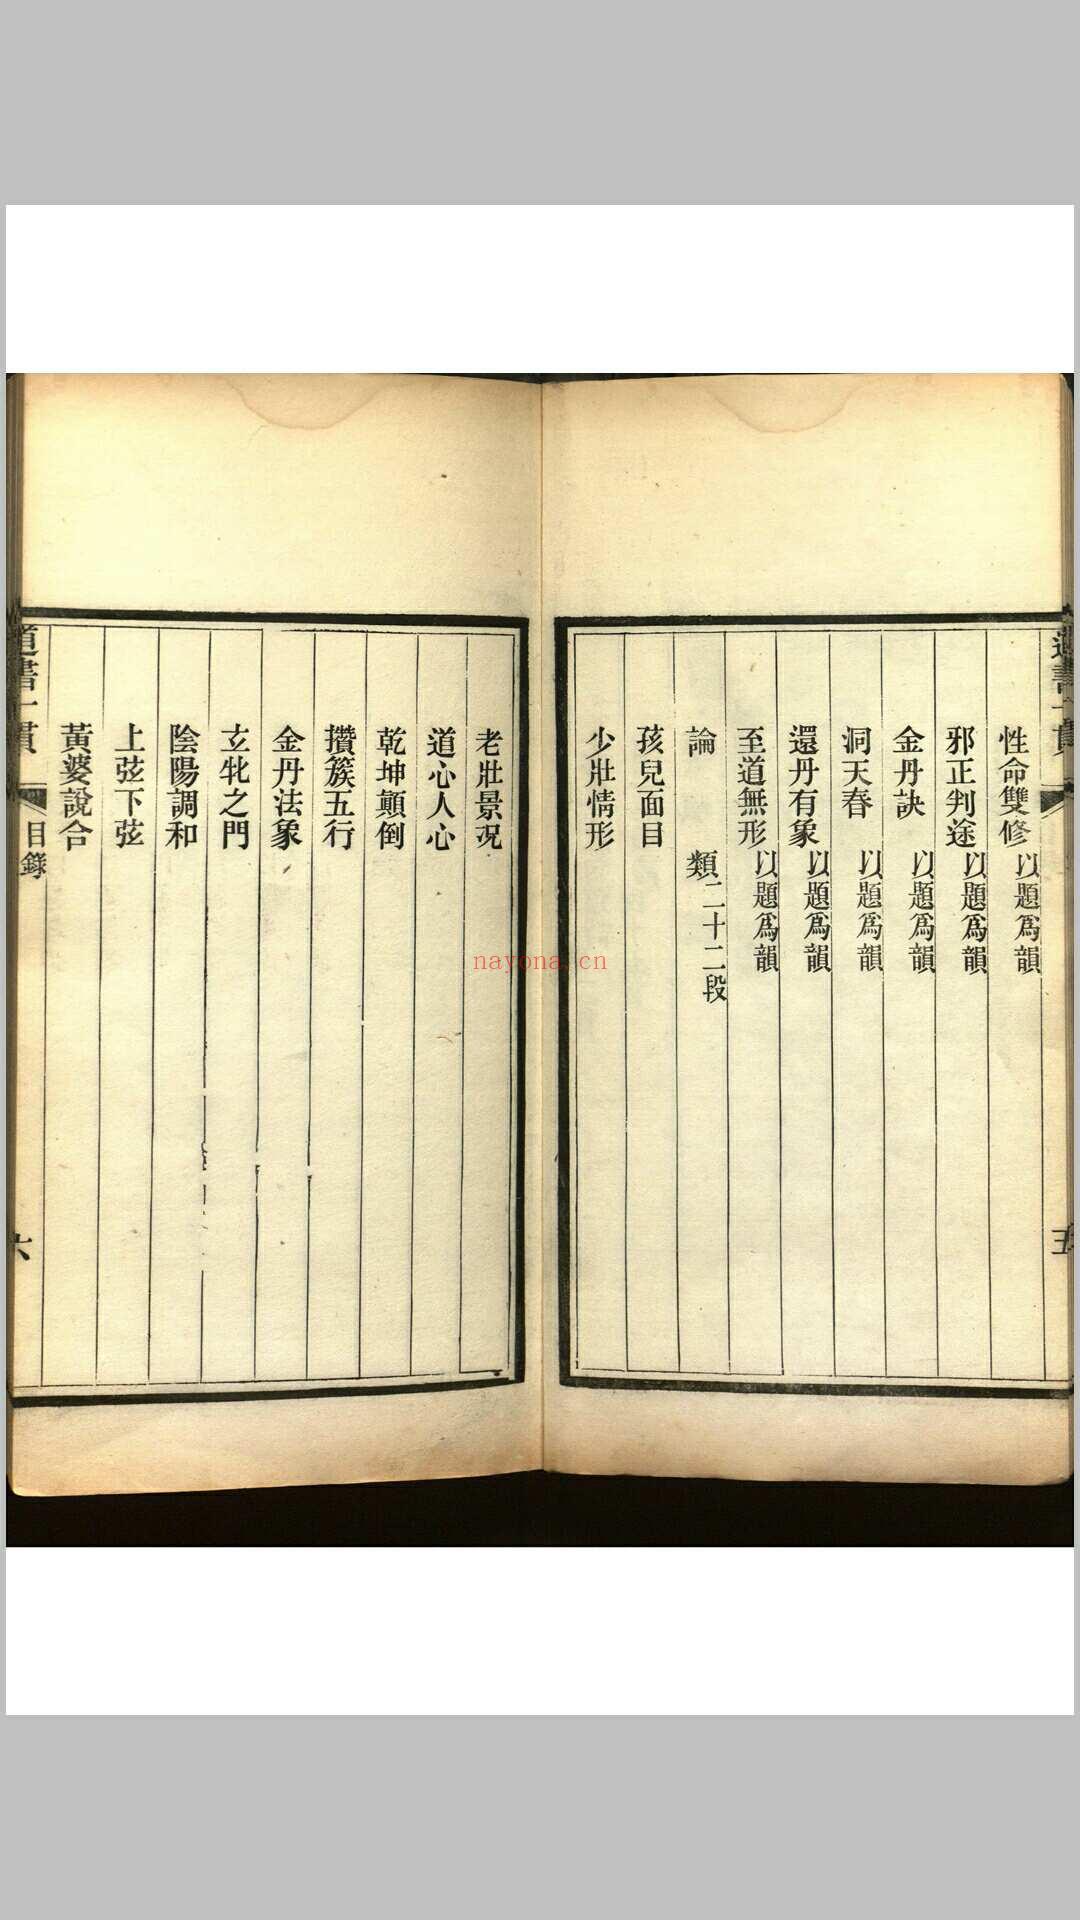 道書一貫
五
性命雙修以題爲韻
邪正判途以題爲韻
金丹訣以題爲韻
洞天春以題爲韻
還丹有象以題爲韻
至道無形以題爲韻
論類二十二段
孩兒面目
少壯情形
老壯景况
道心人心
乾坤顚倒
攢簇五行
金丹法象
玄牝之門
陰陽調和
上弦下弦
黃婆說合
道書一貫
目錄
六
nayona.cn